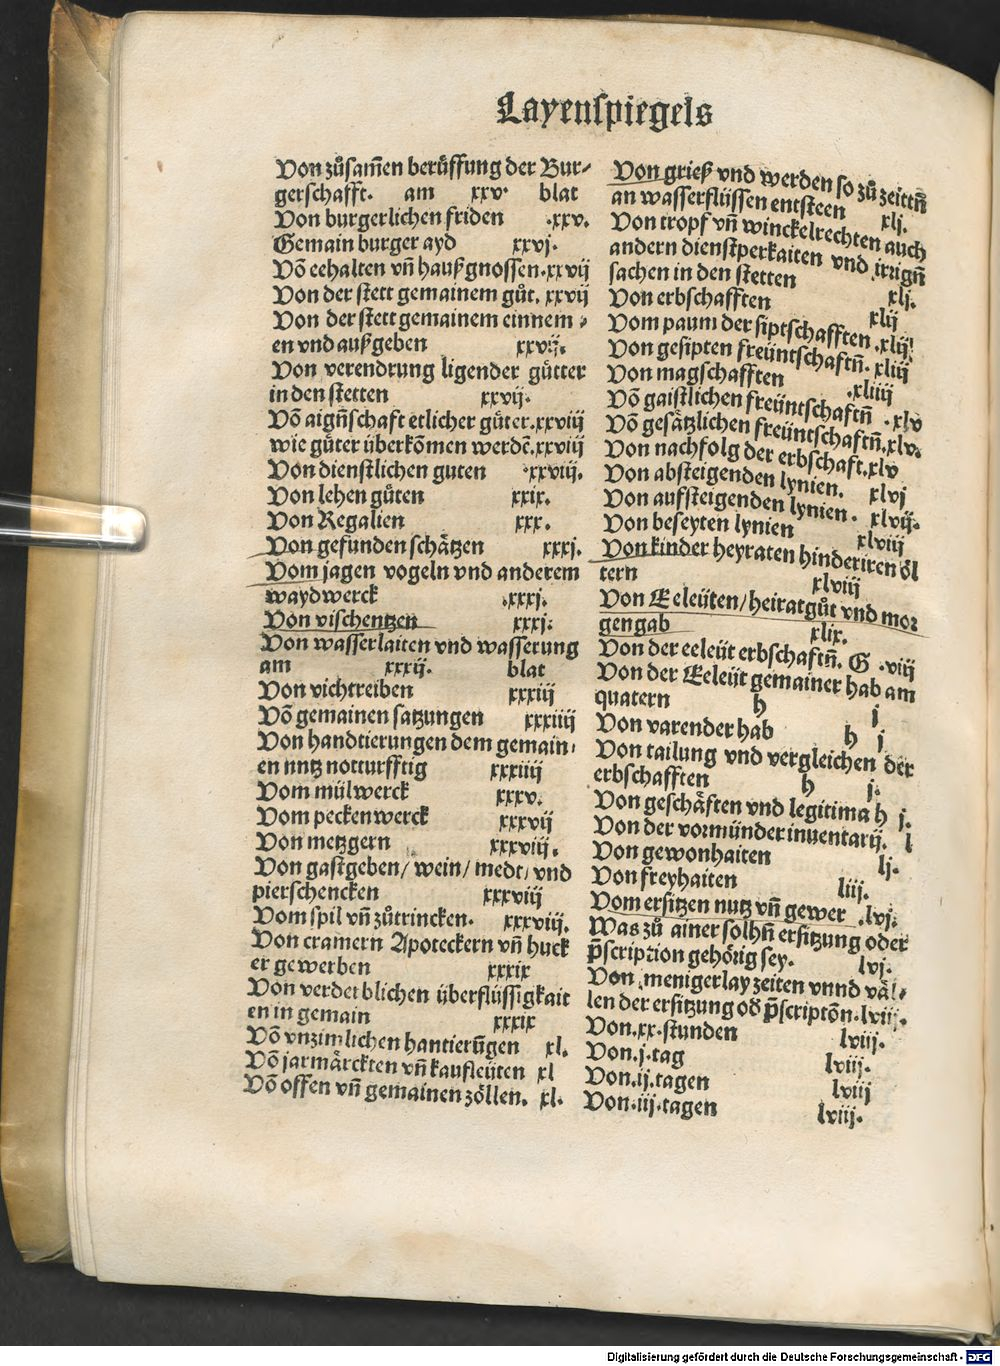 Layenspiegels
Von zůsam̃en berůffung der Bur-
gerschafft. am xxv. blat
Von burgerlichen friden .xxv.
Gemain burger ayd xxvj.
Võ eehalten vñ haußgnossen.xxvij
Von der stett gemainem gůt. xxvij
Von der stett gemainem einnem-
en vnd außgeben xxvij.
Von verendrung ligender gůtter
in den stetten xxvij.
Võ aigñschaft etlicher gůter.xxviij
wie gůter überkõmen werdẽ.xxviij
Von dienstlichen guten .xxviij.
Von lehen gůten xxix.
Von Regalien xxx.
Von gefunden schätzen xxxj.
Vom jagen vogeln vnd anderem
waydwerck .xxxj.
Von vischentzen xxxj.
Von wasserlaiten vnd wasserung
am xxxij. blat
Von vichtreiben xxxiij
Võ gemainen satzungen xxxiiij
Von handtierungen dem gemain-
en nutz notturfftig xxxiiij
Vom mülwerck xxxv.
Vom peckenwerck xxxvij
Von metzgern xxxviij.
Von gastgeben/ wein/ medt/ vnd
pierschencken xxxviij
Vom spil vñ zůtrincken. xxxviij.
Von cramern Apoteckern vñ huck
er gewerben xxxix
Von verderblichen überflüssigkait
en in gemain xxxix
Võ vnzimlichen hantierũgen xl.
Võ jarmärckten vñ kaufleüten xl
Võ offen vñ gemainen zöllen. xl.
Von grieß vnd werden so zů zeittñ
an wasserflüssen entsteen xlj.
Von tropf vñ winckelrechten auch
andern dienstperkaiten vnd jrrgñ
sachen in den stetten xlj.
Von erbschafften xlij
Vom paum der siptschafften .xlij.
Von gesipten freüntschaftñ. xliij
Von magschafften .xliiij
Võ gaistlichen freüntschaftñ .xlv
Võ gesätzlichen freüntschaftñ.xlv.
Von nachfolg der erbschaft.xlv
Von absteigenden lynien. xlvj
Von aufsteigenden lynien. xlvij.
Von beseyten lynien xlviij
Von kinder heyraten hinder iren öl
tern xlviij
Von Eeleüten/ heiratgůt vnd mor
gengab xlix.
Von der eeleüt erbschaftñ. G .viij
Von der Eeleüt gemainer hab am
quatern h j
Von varender hab h j
Von tailung vnd vergleichen der
erbschafften h j.
Von geschäften vnd legitima h j.
Von der vormünder inuentarij. l
Von gewonhaiten lj.
Von freyhaiten liij.
Vom ersitzen nutz vñ gewer .lvj.
Was zů ainer solhñ ersitzung oder
p̃scription gehörig sey. lvj.
Von menigerlay zeiten vnnd väl-
len der ersitzung od̃ p̃scriptõn.lviij.
Von.xx.stunden lviij.
Von.j.tag lviij.
Von.ij.tagen lviij
Von.iij.tagen lviij.
Digitalisierung gefördert durch die Deutsche Forschungsgemeinschaft - DFG